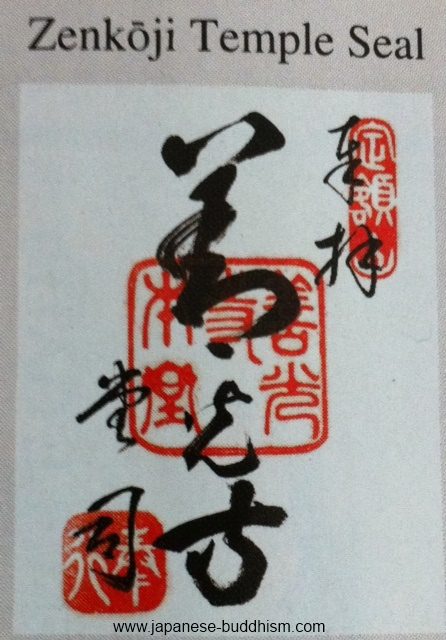 Zenkōji Temple Seal
定額山
奉拝
善光寺
堂司
www.japanese-buddhism.com